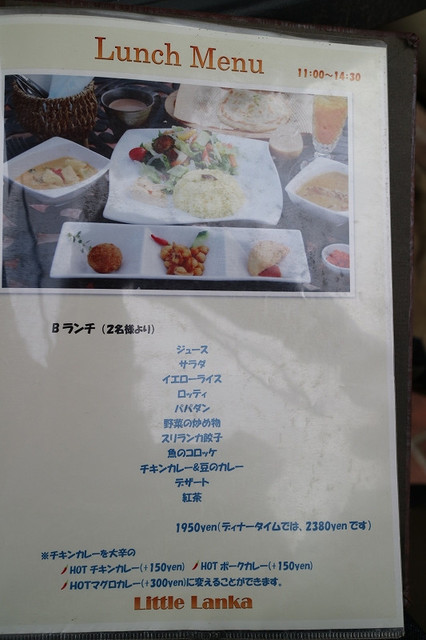 Lunch Menu
11:00~14:30
Bランチ (2名様より)
ジュース
サラダ
イエローライス
ロッティ
パパダン
野菜の炒め物
スリランカ餃子
魚のコロッケ
チキンカレー&豆のカレー
デザート
紅茶
1950yen(ディナータイムでは、2380yen です)
※チキンカレーを大辛の
HOT チキンカレー(+150yen) HOT ポークカレー(+150yen)
HOTマグロカレー(+300yen)に変えることができます。
Little Lanka